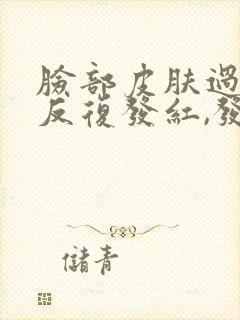 臉部皮肤過
反復發紅,發
儲青